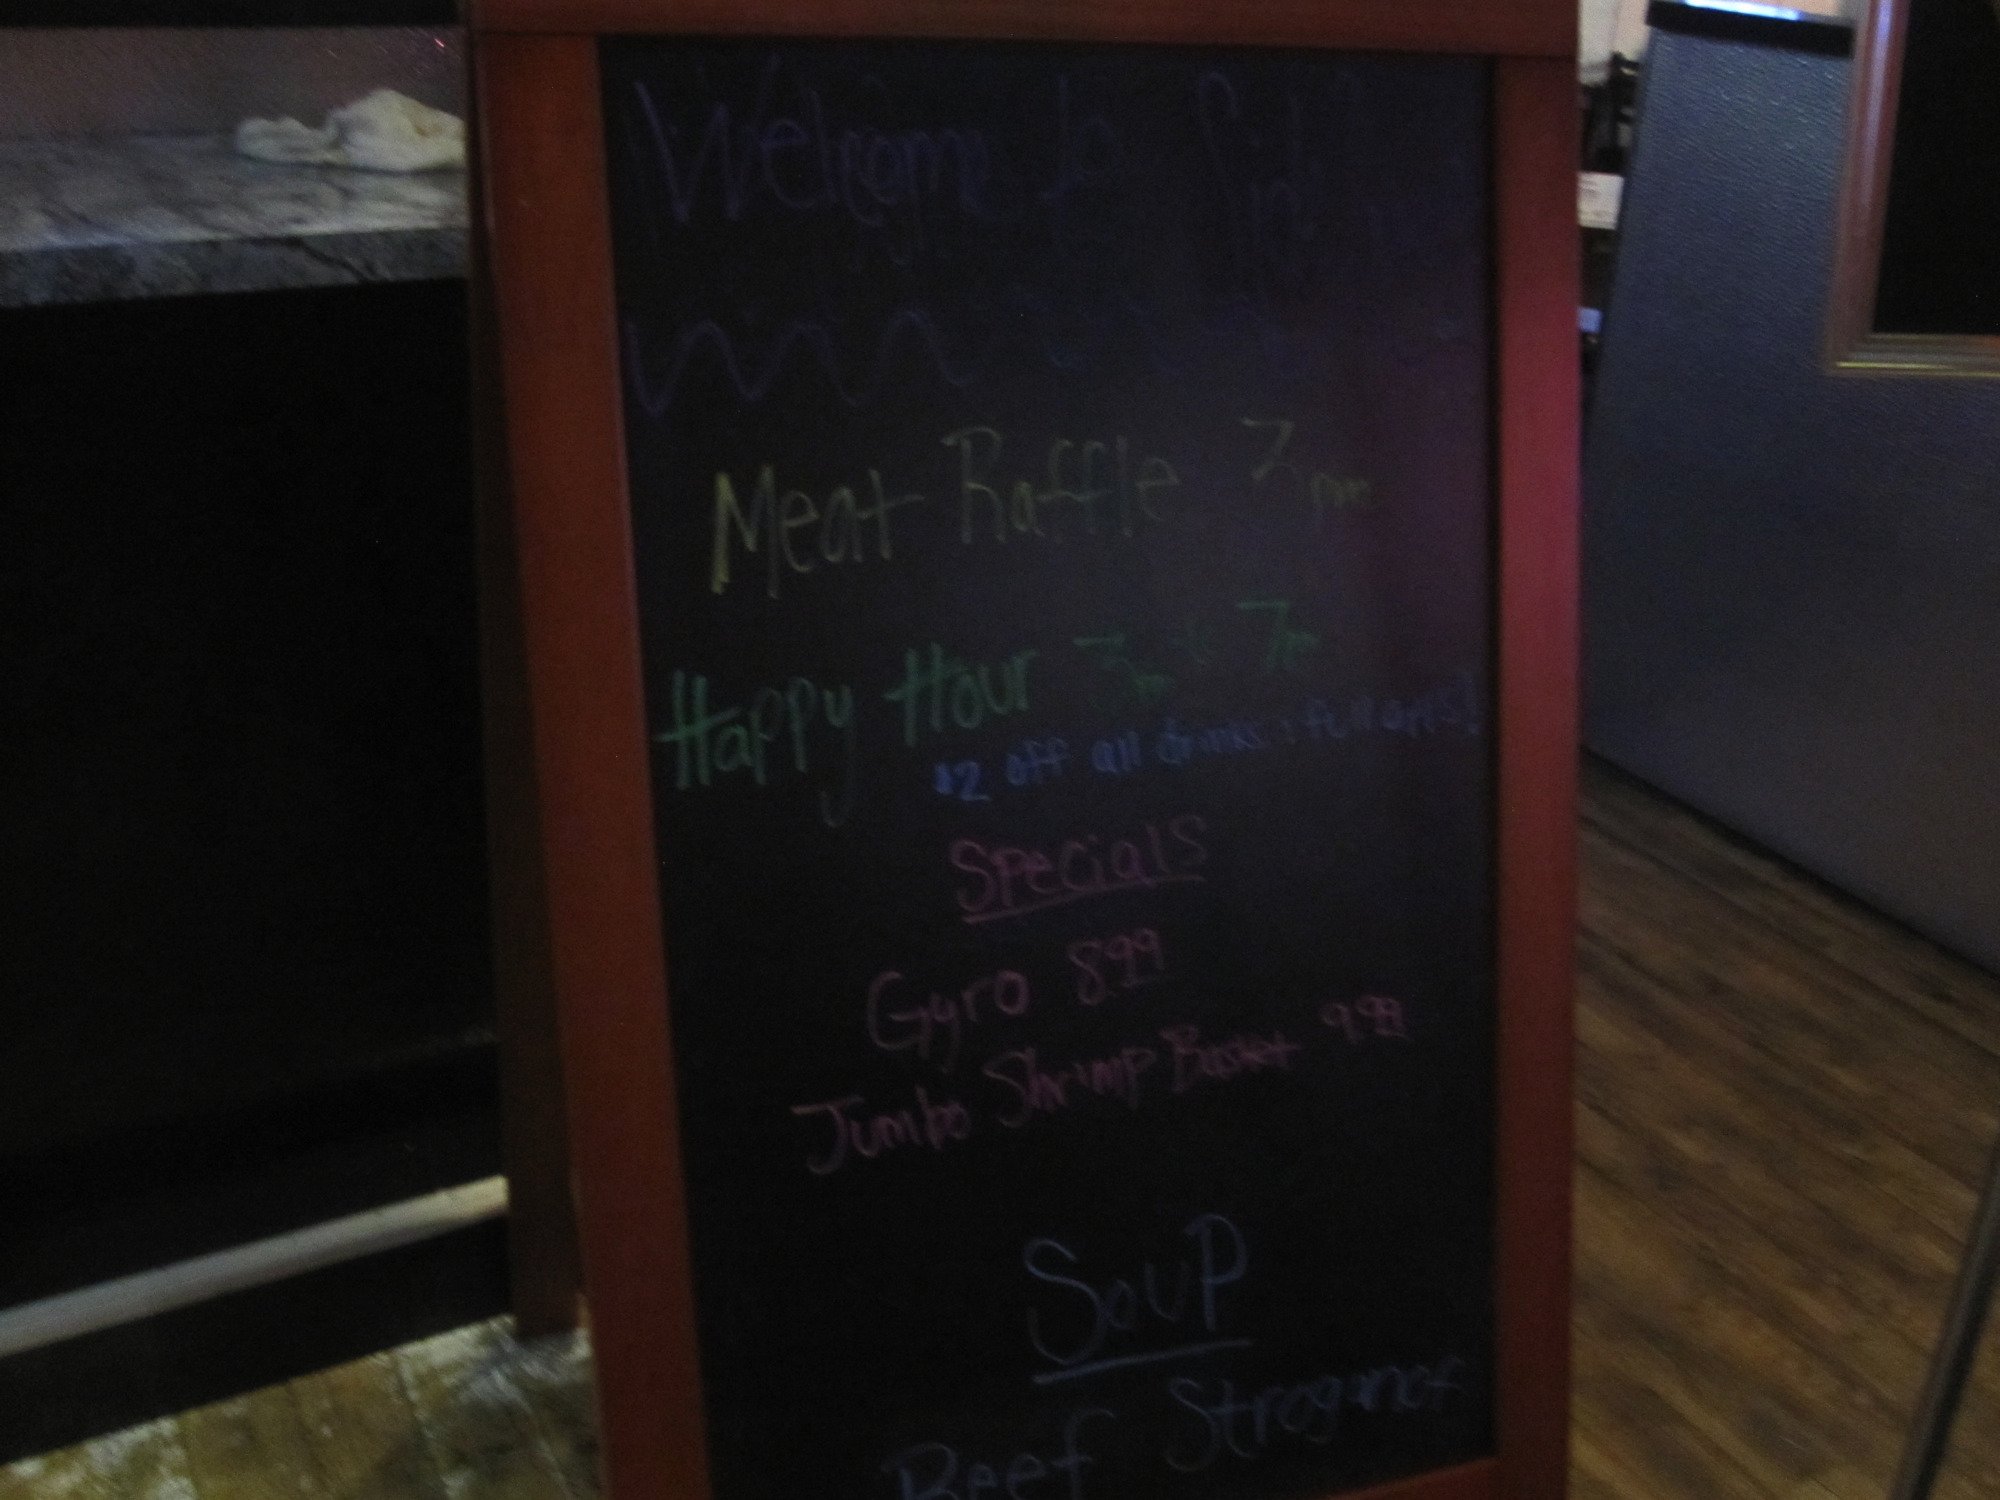 Welcome to
Meat Raffle 7pm
Happy Hour 3pm 7pm
$2 off all drinks
Specials
Gyro 8.99
Jumbo Shrimp Basket 9.99
Soup
Beef Stroganof